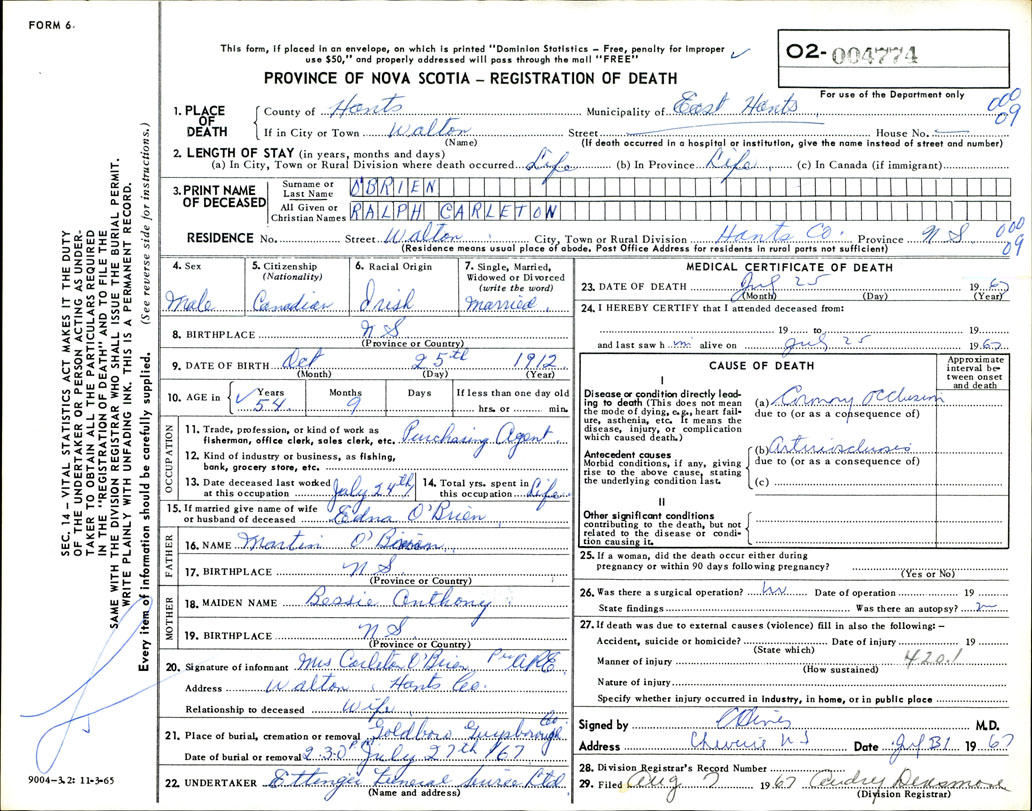 FORM 6.
This form, if placed in an envelope, on which is printed "Dominion Statistics – Free, penalty for improper
use $50," and properly addressed will pass through the mail "FREE"
02-004774
For use of the Department only
PROVINCE OF NOVA SCOTIA – REGISTRATION OF DEATH
000
09
1. PLACE OF DEATH
County of Hants Municipality of East Hants
If in City or Town Walton Street House No.
(Name) (If death occurred in a hospital or institution, give the name instead of street and number)
2. LENGTH OF STAY (in years, months and days)
(a) In City, Town or Rural Division where death occurred Life (b) In Province Life (c) In Canada (if immigrant)
3. PRINT NAME OF DECEASED
Surname or Last Name O'BRIEN
All Given or Christian Names RALPH CARLETON
RESIDENCE No. Street Walton City, Town or Rural Division Hants Co. Province N S
000
09
(Residence means usual place of abode. Post Office Address for residents in rural parts not sufficient)
SEC. 14 – VITAL STATISTICS ACT MAKES IT THE DUTY
OF THE UNDERTAKER OR PERSON ACTING AS UNDER-
TAKER TO OBTAIN ALL THE PARTICULARS REQUIRED
IN THE "REGISTRATION OF DEATH" AND TO FILE THE
SAME WITH THE DIVISION REGISTRAR WHO SHALL ISSUE THE BURIAL PERMIT.
WRITE PLAINLY WITH UNFADING INK. THIS IS A PERMANENT RECORD.
Every item of information should be carefully supplied. (See reverse side for instructions.)
4. Sex
Male
5. Citizenship
(Nationality)
Canadian
6. Racial Origin
Irish
7. Single, Married,
Widowed or Divorced
(write the word)
Married
8. BIRTHPLACE N S
(Province or Country)
9. DATE OF BIRTH Oct 25th 1912
(Month) (Day) (Year)
10. AGE in Years Months Days If less than one day old
54 9 hrs. or min.
OCCUPATION
11. Trade, profession, or kind of work as
fisherman, office clerk, sales clerk, etc. Purchasing Agent
12. Kind of industry or business, as fishing,
bank, grocery store, etc.
13. Date deceased last worked
at this occupation July 24th
14. Total yrs. spent in
this occupation Life
15. If married give name of wife
or husband of deceased Edna O'Brien
FATHER
16. NAME Martin O'Brien
17. BIRTHPLACE N S
(Province or Country)
MOTHER
18. MAIDEN NAME Bessie Anthony
19. BIRTHPLACE N S
(Province or Country)
20. Signature of informant Mrs Carleton O'Brien Per ARE
Address Walton Hants Co.
Relationship to deceased Wife
21. Place of burial, cremation or removal Goldboro Guysborough Co
Date of burial or removal 2.30 P July 27th /67
22. UNDERTAKER Ettinger Funeral Service Ltd.
(Name and address)
9004-3.2: 11-3-65
MEDICAL CERTIFICATE OF DEATH
23. DATE OF DEATH Jul 25 1967
(Month) (Day) (Year)
24. I HEREBY CERTIFY that I attended deceased from:
19 to 19
and last saw h im alive on Jul 25 1967
CAUSE OF DEATH
Approximate
interval be-
tween onset
and death
I
Disease or condition directly lead-
ing to death (This does not mean
the mode of dying, e.g., heart fail-
ure, asthenia, etc. It means the
disease, injury, or complication
which caused death.)
(a) Coronary occlusion
due to (or as a consequence of)
Antecedent causes
Morbid conditions, if any, giving
rise to the above cause, stating
the underlying condition last.
(b)
due to (or as a consequence of)
(c)
II
Other significant conditions
contributing to the death, but not
related to the disease or condi-
tion causing it.
25. If a woman, did the death occur either during
pregnancy or within 90 days following pregnancy?
(Yes or No)
26. Was there a surgical operation? no Date of operation 19
State findings Was there an autopsy? no
27. If death was due to external causes (violence) fill in also the following: –
Accident, suicide or homicide? Date of injury 19
(State which)
Manner of injury 420.1
(How sustained)
Nature of injury
Specify whether injury occurred in industry, in home, or in public place
Signed by M.D.
Address Cheverie N S Date Jul 31 1967
28. Division Registrar's Record Number
29. Filed Aug 7 1967 Audrey Densmore
(Division Registrar)